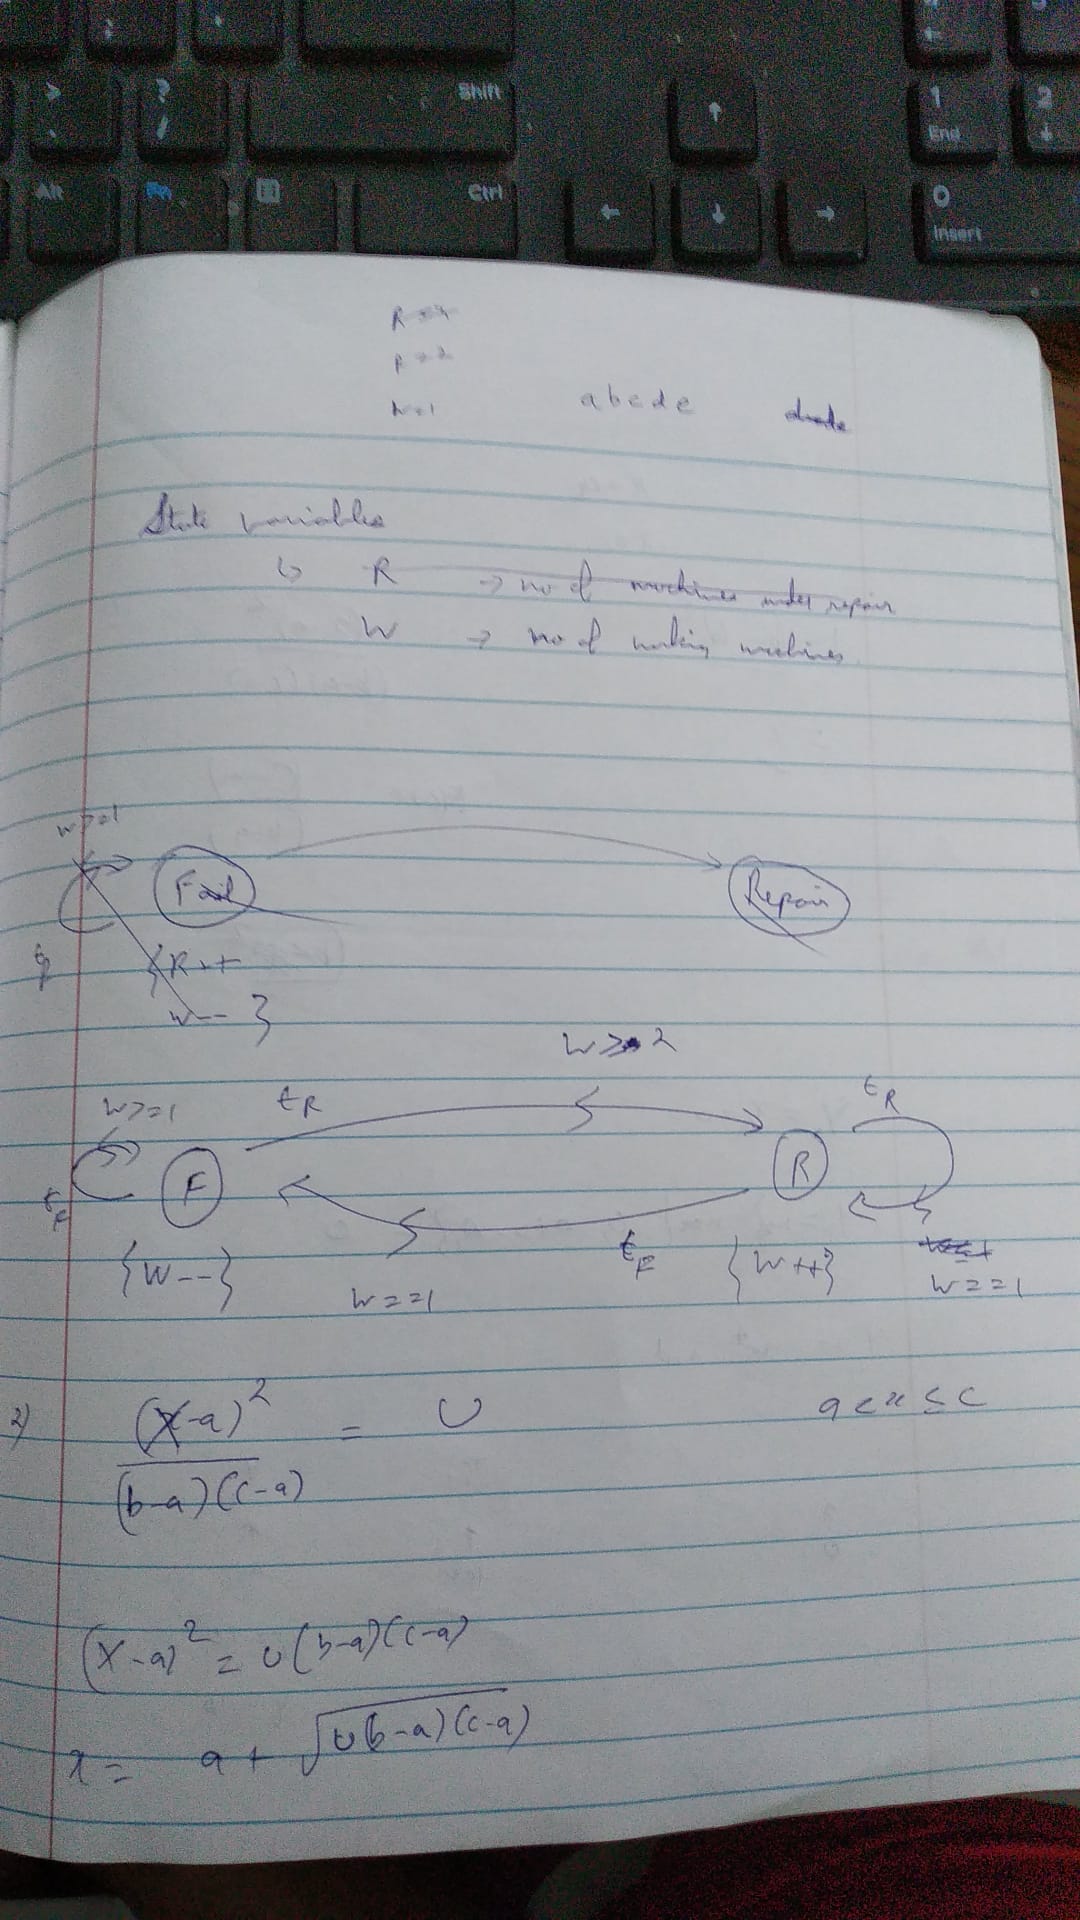 Shift
1
End
2
Alt
Fn
Ctrl
0
Insert
abcde
State variables
R → no of machines under repair
W → no of working machines
W>=1
Fail
Repair
{R++
W--}
W>2
W>=1
tR
tR
F
R
tF
{W--}
tF
{W++}
W==1
W==1
2) (X-a)² = U a<x≤c
(b-a)(c-a)
(X-a)² = U(b-a)(c-a)
x = a + √U(b-a)(c-a)